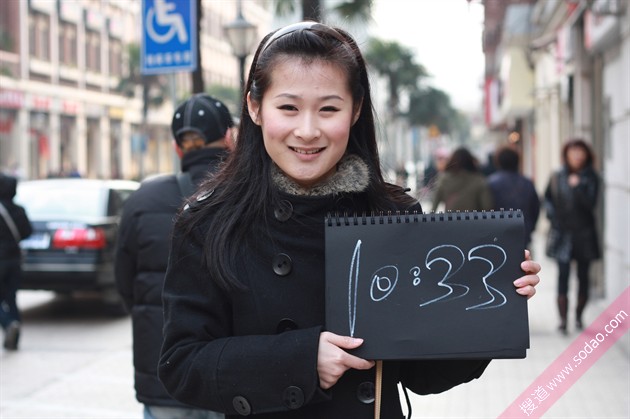 10:33
搜道www.sodao.com